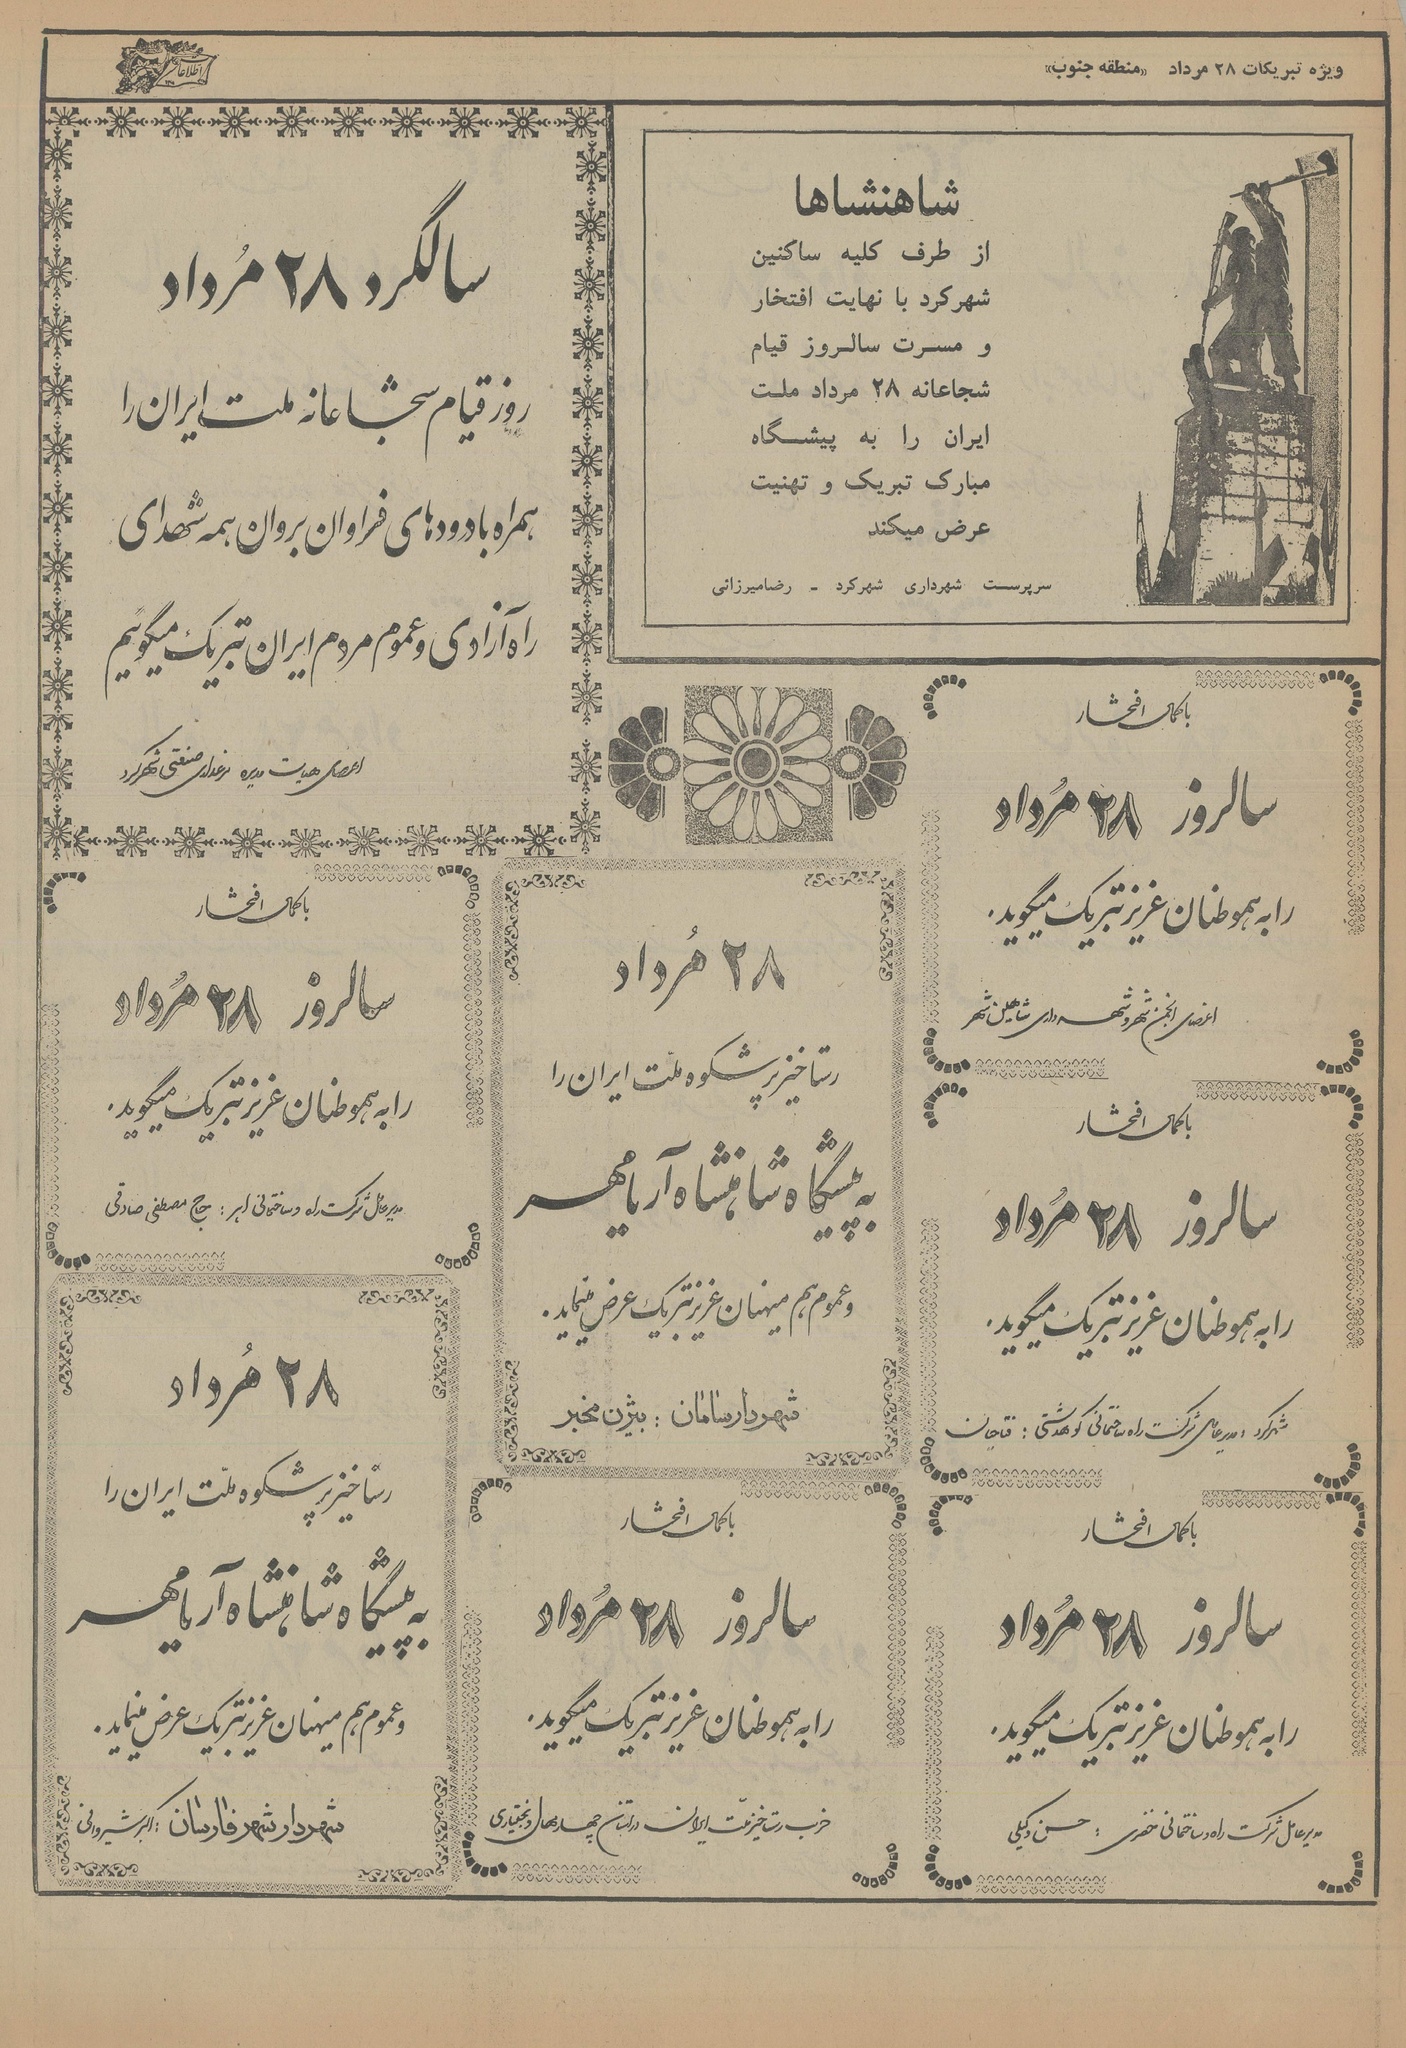 ویژه تبریکات ۲۸ مرداد «منطقه جنوب»
اطلاعات
شاهنشاها
از طرف کلیه ساکنین
شهرکرد با نهایت افتخار
و مسرت سالروز قیام
شجاعانه ۲۸ مرداد ملت
ایران را به پیشگاه
مبارک تبریک و تهنیت
عرض میکند
سرپرست شهرداری شهرکرد - رضامیرزائی
سالگرد ۲۸ مُرداد
روز قیام شجاعانه ملت ایران را
همراه با درودهای فراوان بروان همه شهدای
راه آزادی و عموم مردم ایران تبریک میگوئیم
اعضای هیئت مدیره مرغداری صنعتی شهرکرد
با کمال افتخار
سالروز ۲۸ مُرداد
را به هموطنان عزیز تبریک میگوید.
اعضای انجمن شهر و شهرداری شاهین شهر
با کمال افتخار
سالروز ۲۸ مُرداد
را به هموطنان عزیز تبریک میگوید.
شهرکرد : مدیرعامل شرکت راه ساختمانی کوهدشتی : فتاحیان
با کمال افتخار
سالروز ۲۸ مُرداد
را به هموطنان عزیز تبریک میگوید.
مدیرعامل شرکت راه و ساختمانی خضری : حسن وکیلی
۲۸ مُرداد
رستاخیز پرشکوه ملّت ایران را
به پیشگاه شاهنشاه آریامهر
و عموم هم میهنان عزیز تبریک عرض مینماید.
شهردار سامان : بیژن مخبر
با کمال افتخار
سالروز ۲۸ مُرداد
را به هموطنان عزیز تبریک میگوید.
حزب رستاخیز ملّت ایران در استان چهارمحال و بختیاری
با کمال افتخار
سالروز ۲۸ مُرداد
را به هموطنان عزیز تبریک میگوید.
مدیرعامل شرکت راه و ساختمانی ابر : حاج مصطفی صادقی
۲۸ مُرداد
رستاخیز پرشکوه ملّت ایران را
به پیشگاه شاهنشاه آریامهر
و عموم هم میهنان عزیز تبریک عرض مینماید.
شهردار شهر فارسان : اکبر شیروانی